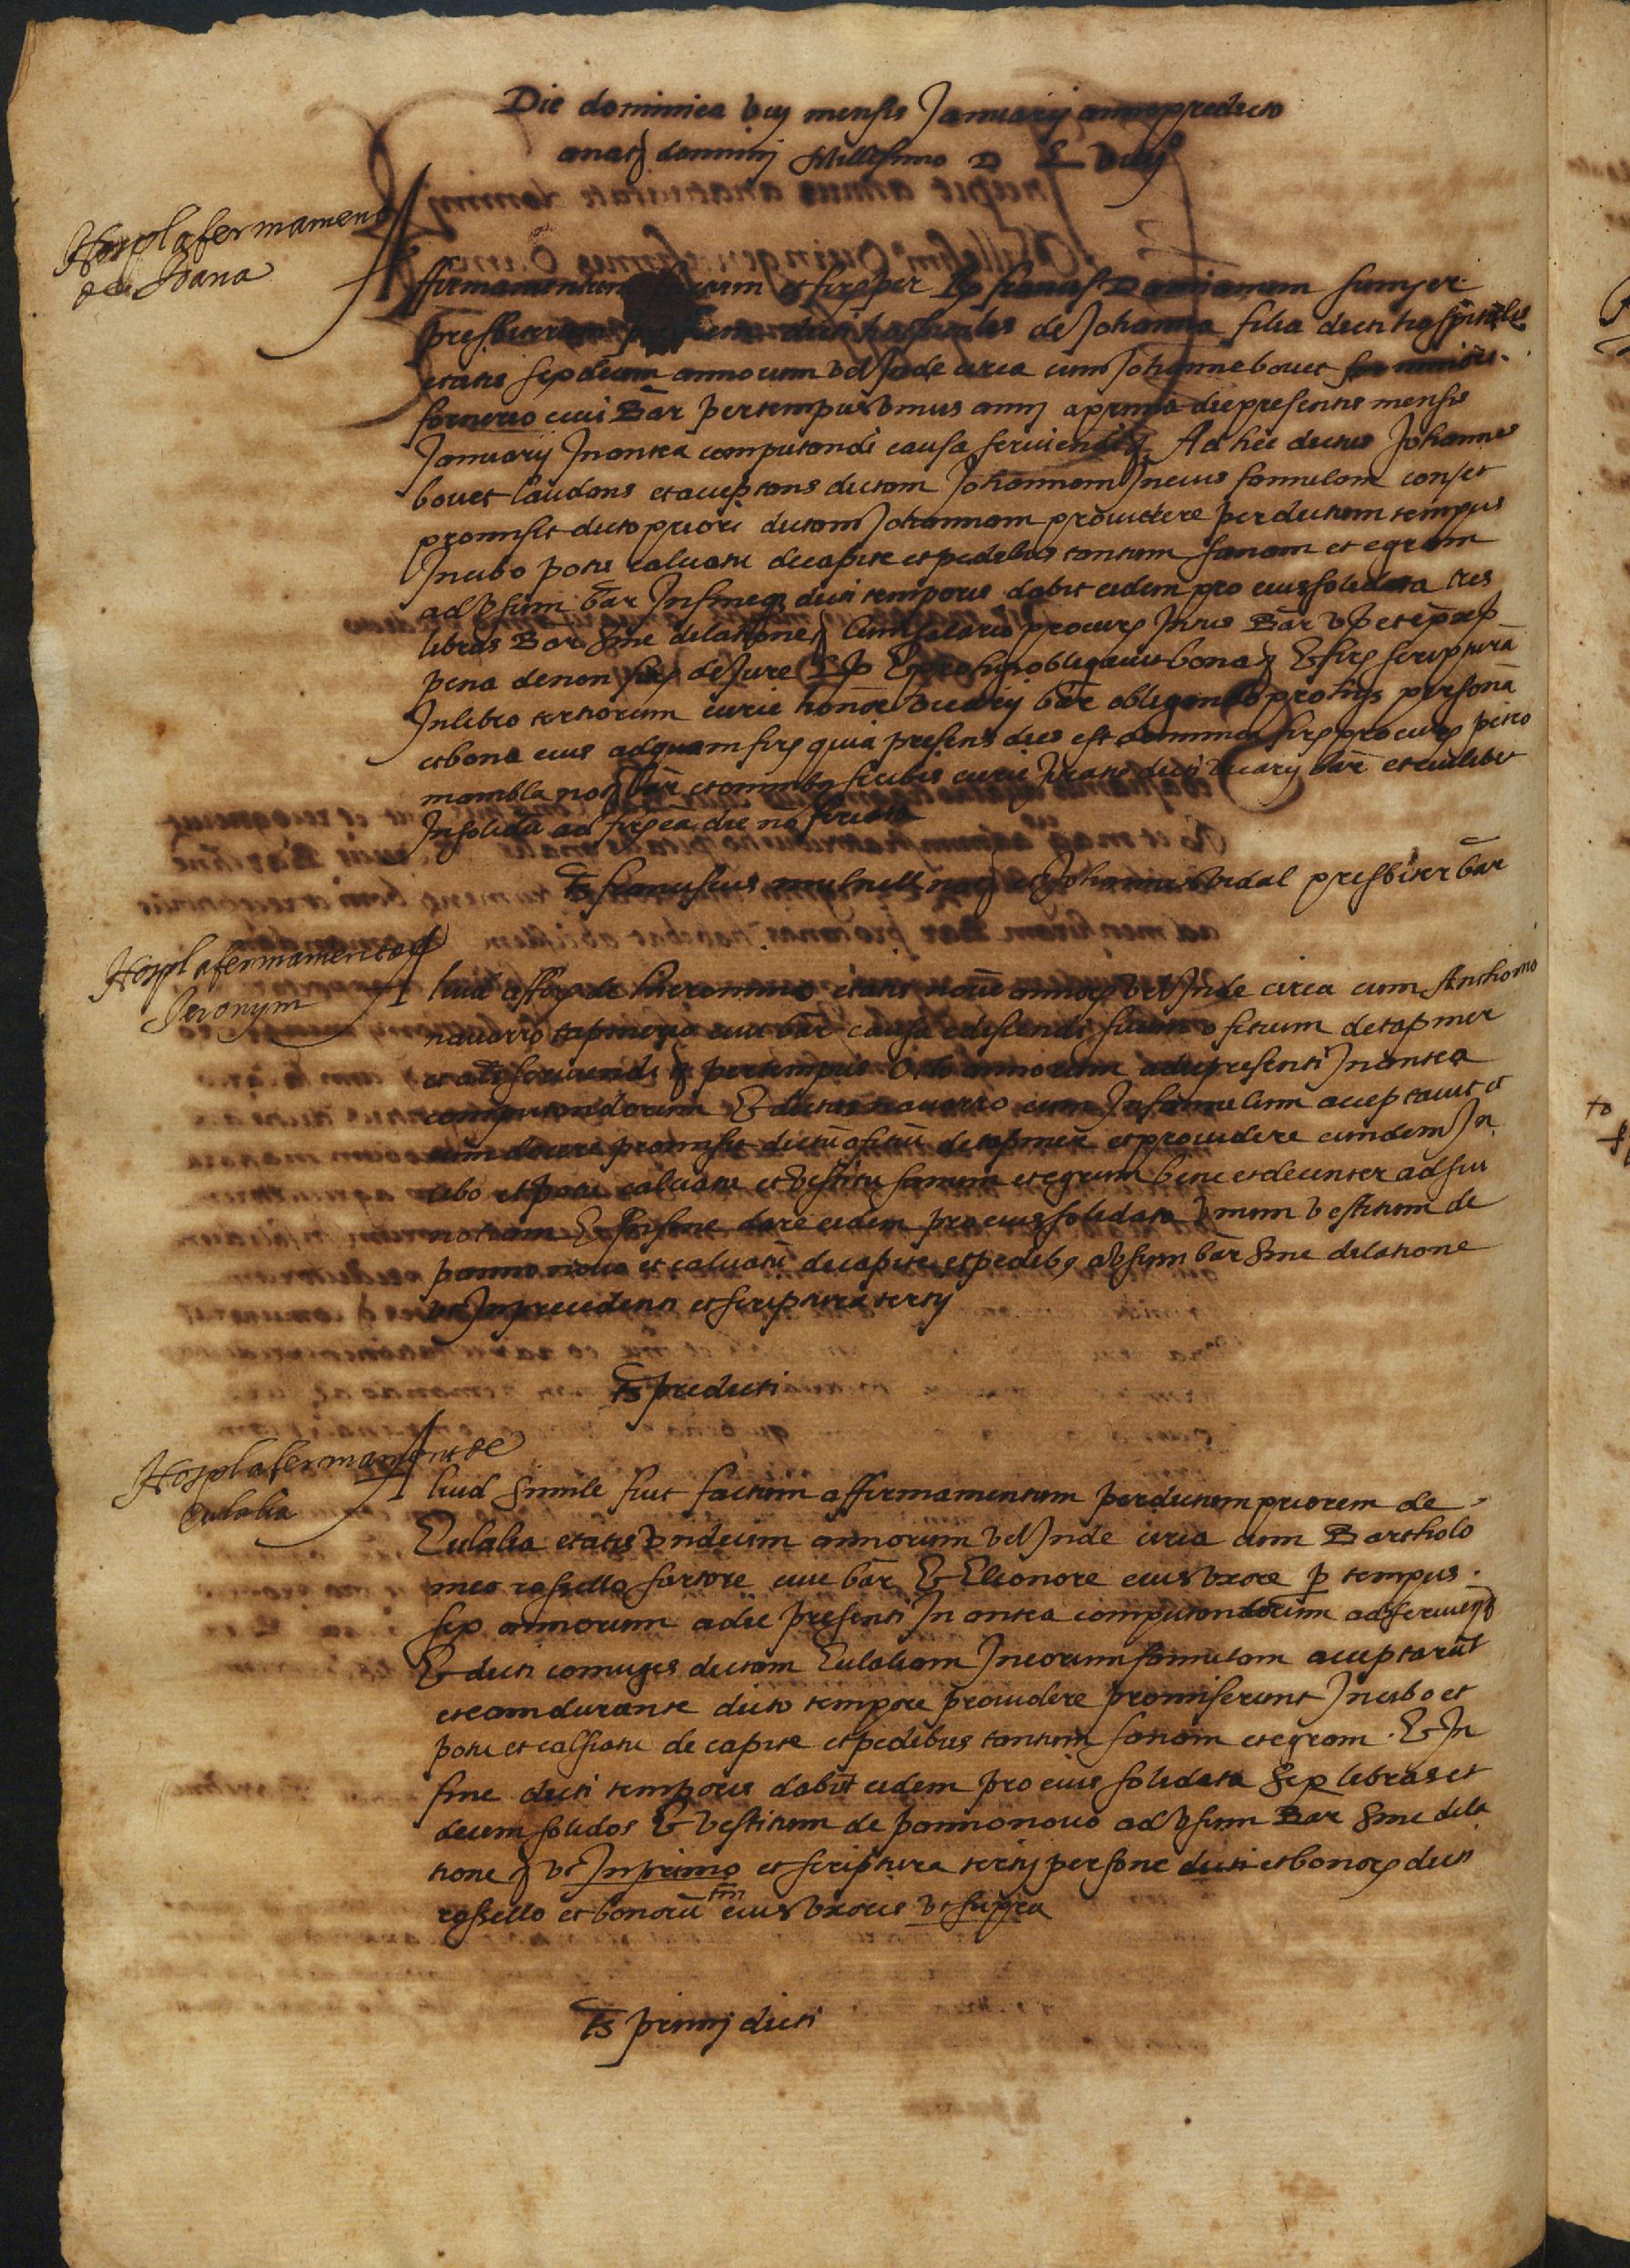 Die dominica viij mensis Januarij anno predicto
a nat domini Millesimo D L viiij
Hospl afermament
de Joana
Affirmamentum et firs per Damianum sunyer
presbiterum dicti hospitalis de Johanna filia dicti hospitalis
etatis sepdecim annorum vel Inde circa cum Johanne bouet
fornerio civi Bar per tempus vnius anni a prima die presentis mensis
Januarij In antea computandi causa serviendi Ad hec dictus Johannes
bouet laudans et acceptans dictam Johannam In eius famulam
promisit dicto priori dictam Johannam providere per dictum tempus
In cibo potu calciatu de capite et pedibus tantum sanam et egram
ad vsum bar In fineq dicti temporis dabit eidem pro eius solidata tres
libras Bar sine dilatione cum salario procurs Intus Bar
pena de non firs de Jure obligavit bona Et firs scriptura
In libro tertiorum curie honor vicarij bar obligando pro hijs persona
et bona eius ad quam firs quia presens dies est dominica firs procurs petro
mambla not Bar et omnibs scribis curie Juratis dicti vicarij bar et cuilibet
In solidu ad firs ea die no feriata
Ts franciscus not et Johannes vidal presbiter bar
Hospl afermament de
Jeronym
Aliud affirs de hieronimo etatis nove annors vel Inde circa cum Anthonio
navarro tapinerio civi bar causa adiscendi suum ofitium de tapiner
et ad serviendi per tempus octo annorum a die presenti In antea
computandorum Et dictus navarro eum In famulum acceptavit et
eum docere promisit dictu ofitiu de tapiner et providere eundem In
cibo et potu calciatu et vestitu sanum et egrum bene et decenter
Et In fine dare eidem pro eius solidata vnum vestitum de
panno novo et calciatu de capite et pedibs ad vsum bar sine dilatione
vt In precedenti et scriptura tertij
Ts predicti
Hospl afermament de
Eulalia
Aliud simile fuit factum affirmamentum per dictum priorem de
Eulalia etatis vndecim annorum vel Inde circa cum Bartholo
meo rossello sartore cive bar Et Elionore eius vxore p tempus
sep annorum a die presenti In antea computandorum ad serviend
Et dicti coniuges dictam Eulaliam In eorum famulam acceptarut
et eam durante dicto tempore providere promiserunt In cibo et
potu et calsiatu de capite et pedibus tantum sanam et egram. Et In
fine dicti temporis dabut eidem pro eius solidata sep libras et
decem solidos Et vestitum de panno novo ad vsum Bar sine dila
tione vt In primo et scriptura tertij persone dicti et bonors dicti
rossello et bonoru tm eius vxoris vt supra
Ts primj dicti